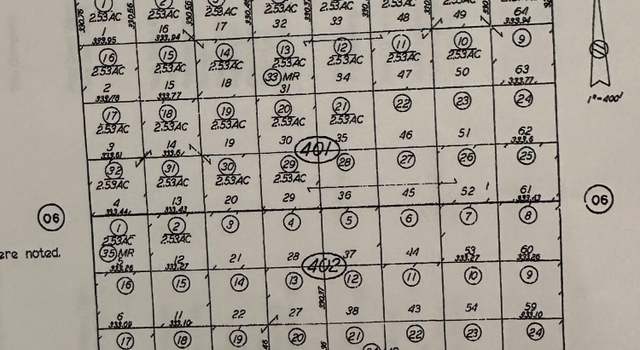 1 2 3
2.53AC 2.53AC 2.53AC 2.53AC 2.53AC 2.53AC
1 16 17 32 33 48 49 64
333.95 333.94 333.94
16 15 14 13 12 11 10 9
2.53AC 2.53AC 2.53AC 2.53AC 2.53AC 2.53AC 2.53AC
33 MR
2 15 18 31 34 47 50 63
333.78 333.77 333.77
1"=400'
17 18 19 20 21 22 23 24
2.53AC 2.53AC 2.53AC 2.53AC 2.53AC
3 14 19 30 35 46 51 62
333.61 333.61 333.6
401
32 31 30 29 28 27 26 25
2.53AC 2.53AC 2.53AC 2.53AC
4 13 20 29 36 45 52 61
333.44 333.43 333.43
06 06
1 2 3 4 5 6 7 8
2.53AC 2.53AC
35 MR
ere noted.
5 12 21 28 37 44 53 60
333.26 333.27 333.27 333.26
402
16 15 14 13 12 11 10 9
330.97
6 11 22 27 38 43 54 59
333.09 333.10 333.10
17 18 19 20 21 22 23 24